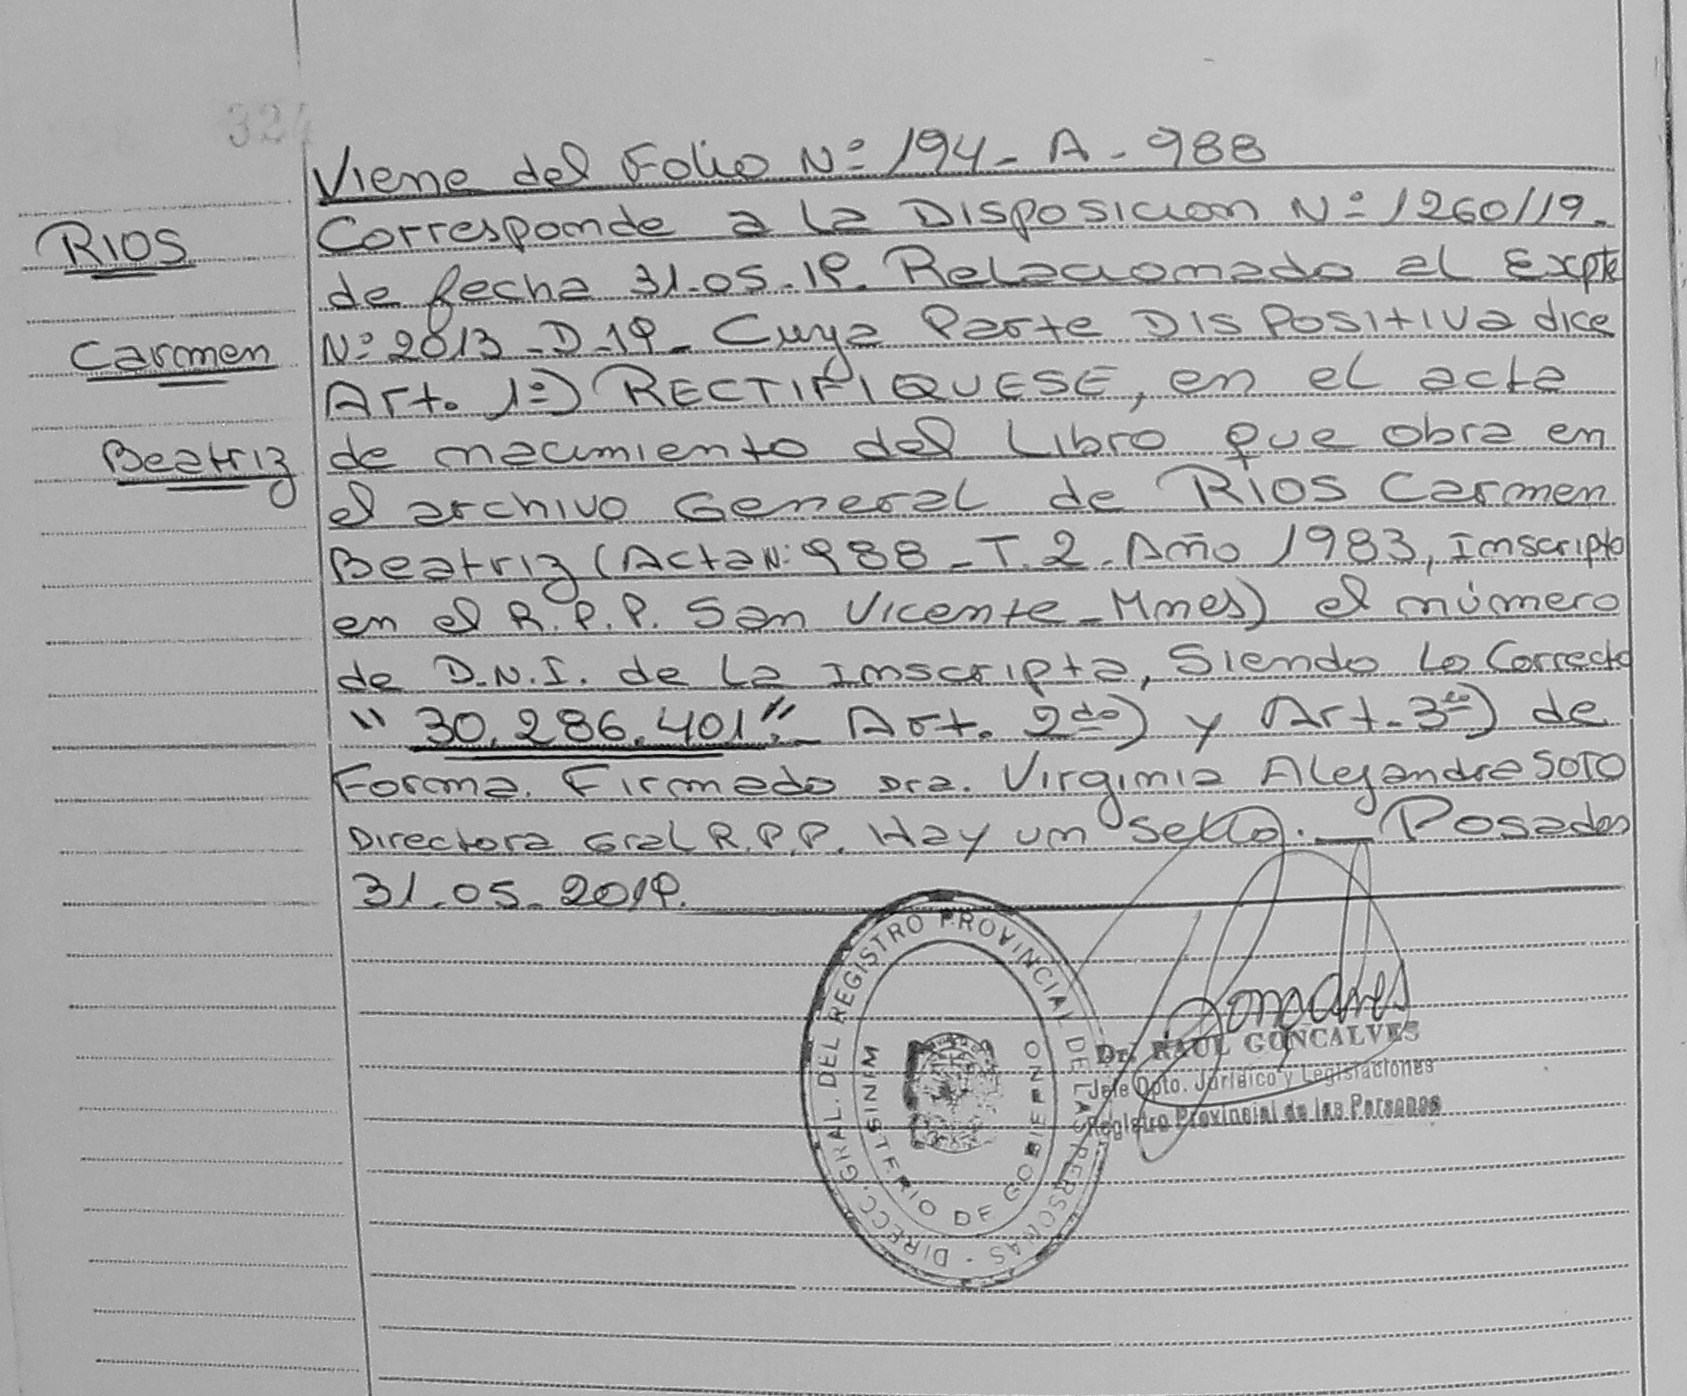 324
Viene del Folio Nº 194 - A - 988
RIOS
Carmen
Beatriz
Corresponde a la Disposicion Nº 1260/19.
de fecha 31.05.19. Relacionado al Expte
Nº 2813 - D - 19 - Cuya Parte Dispositiva dice
Art. 1º) RECTIFIQUESE, en el acta
de nacimiento del Libro que obra en
el archivo General de Rios Carmen
Beatriz (Acta Nº 988 - T. 2 - Año 1983, Inscripto
en el R.P.P. San Vicente - Mnes) el número
de D.N.I. de la Inscripta, Siendo Lo Correcto
"30.286.401". - Art. 2do) y Art. 3ro) de
Forma. Firmado Dra. Virginia Alejandra SOTO
Directora Gral R.P.P. Hay un Sello. — Posadas
31.05.2019.
DIRECC. GRAL. DEL REGISTRO PROVINCIAL DE LAS PERSONAS -
MINISTERIO DE GOBIERNO
Dr. RAUL GONCALVES
Jefe Dpto. Jurídico y Legislaciones
Registro Provincial de las Personas